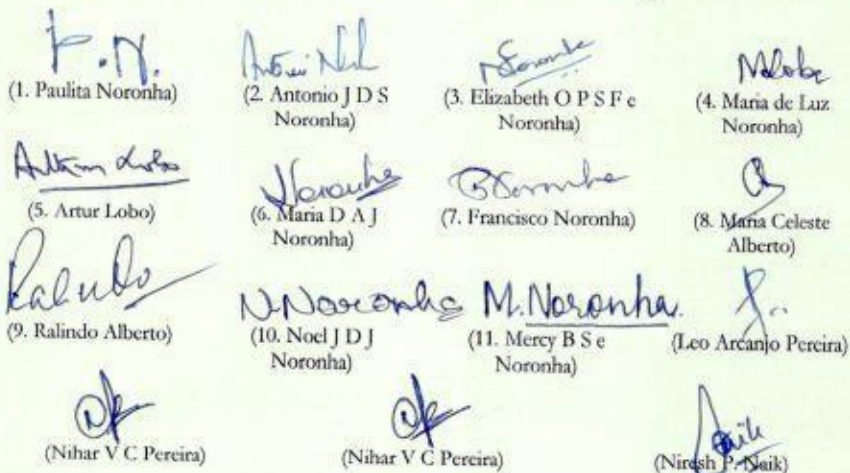 P. N.
(1. Paulita Noronha)
(2. Antonio J D S
Noronha)
Noronha
(3. Elizabeth O P S F e
Noronha)
(4. Maria de Luz
Noronha)
Artur Lobo
(5. Artur Lobo)
Noronha
(6. Maria D A J
Noronha)
Noronha
(7. Francisco Noronha)
(8. Maria Celeste
Alberto)
(9. Ralindo Alberto)
N. Noronha
(10. Noel J D J
Noronha)
M. Noronha.
(11. Mercy B S e
Noronha)
(Leo Arcanjo Pereira)
(Nihar V C Pereira)
(Nihar V C Pereira)
Naik
(Niresh P. Naik)